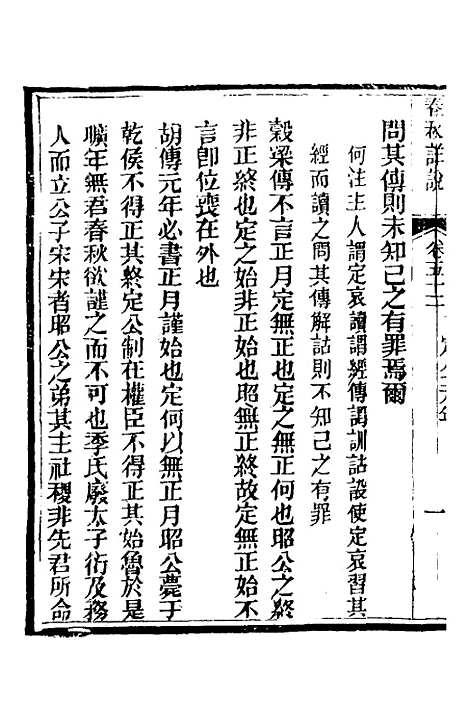 春秋詳說
卷五十二
定公元年
一
問其傳則未知己之有罪焉爾
何注主人謂定哀讀謂經傳謂訓詁設使定哀習其
經而讀之問其傳解詁則不知己之有罪
穀梁傳不言正月定無正也定之無正何也昭公之終
非正終也定之始非正始也昭無正終故定無正始不
言卽位喪在外也
胡傳元年必書正月謹始也定何以無正月昭公薨于
乾侯不得正其終定公制在權臣不得正其始魯於是
曠年無君春秋欲謹之而不可也季氏廢太子衍及務
人而立公子宋宋者昭公之弟其主社稷非先君所命